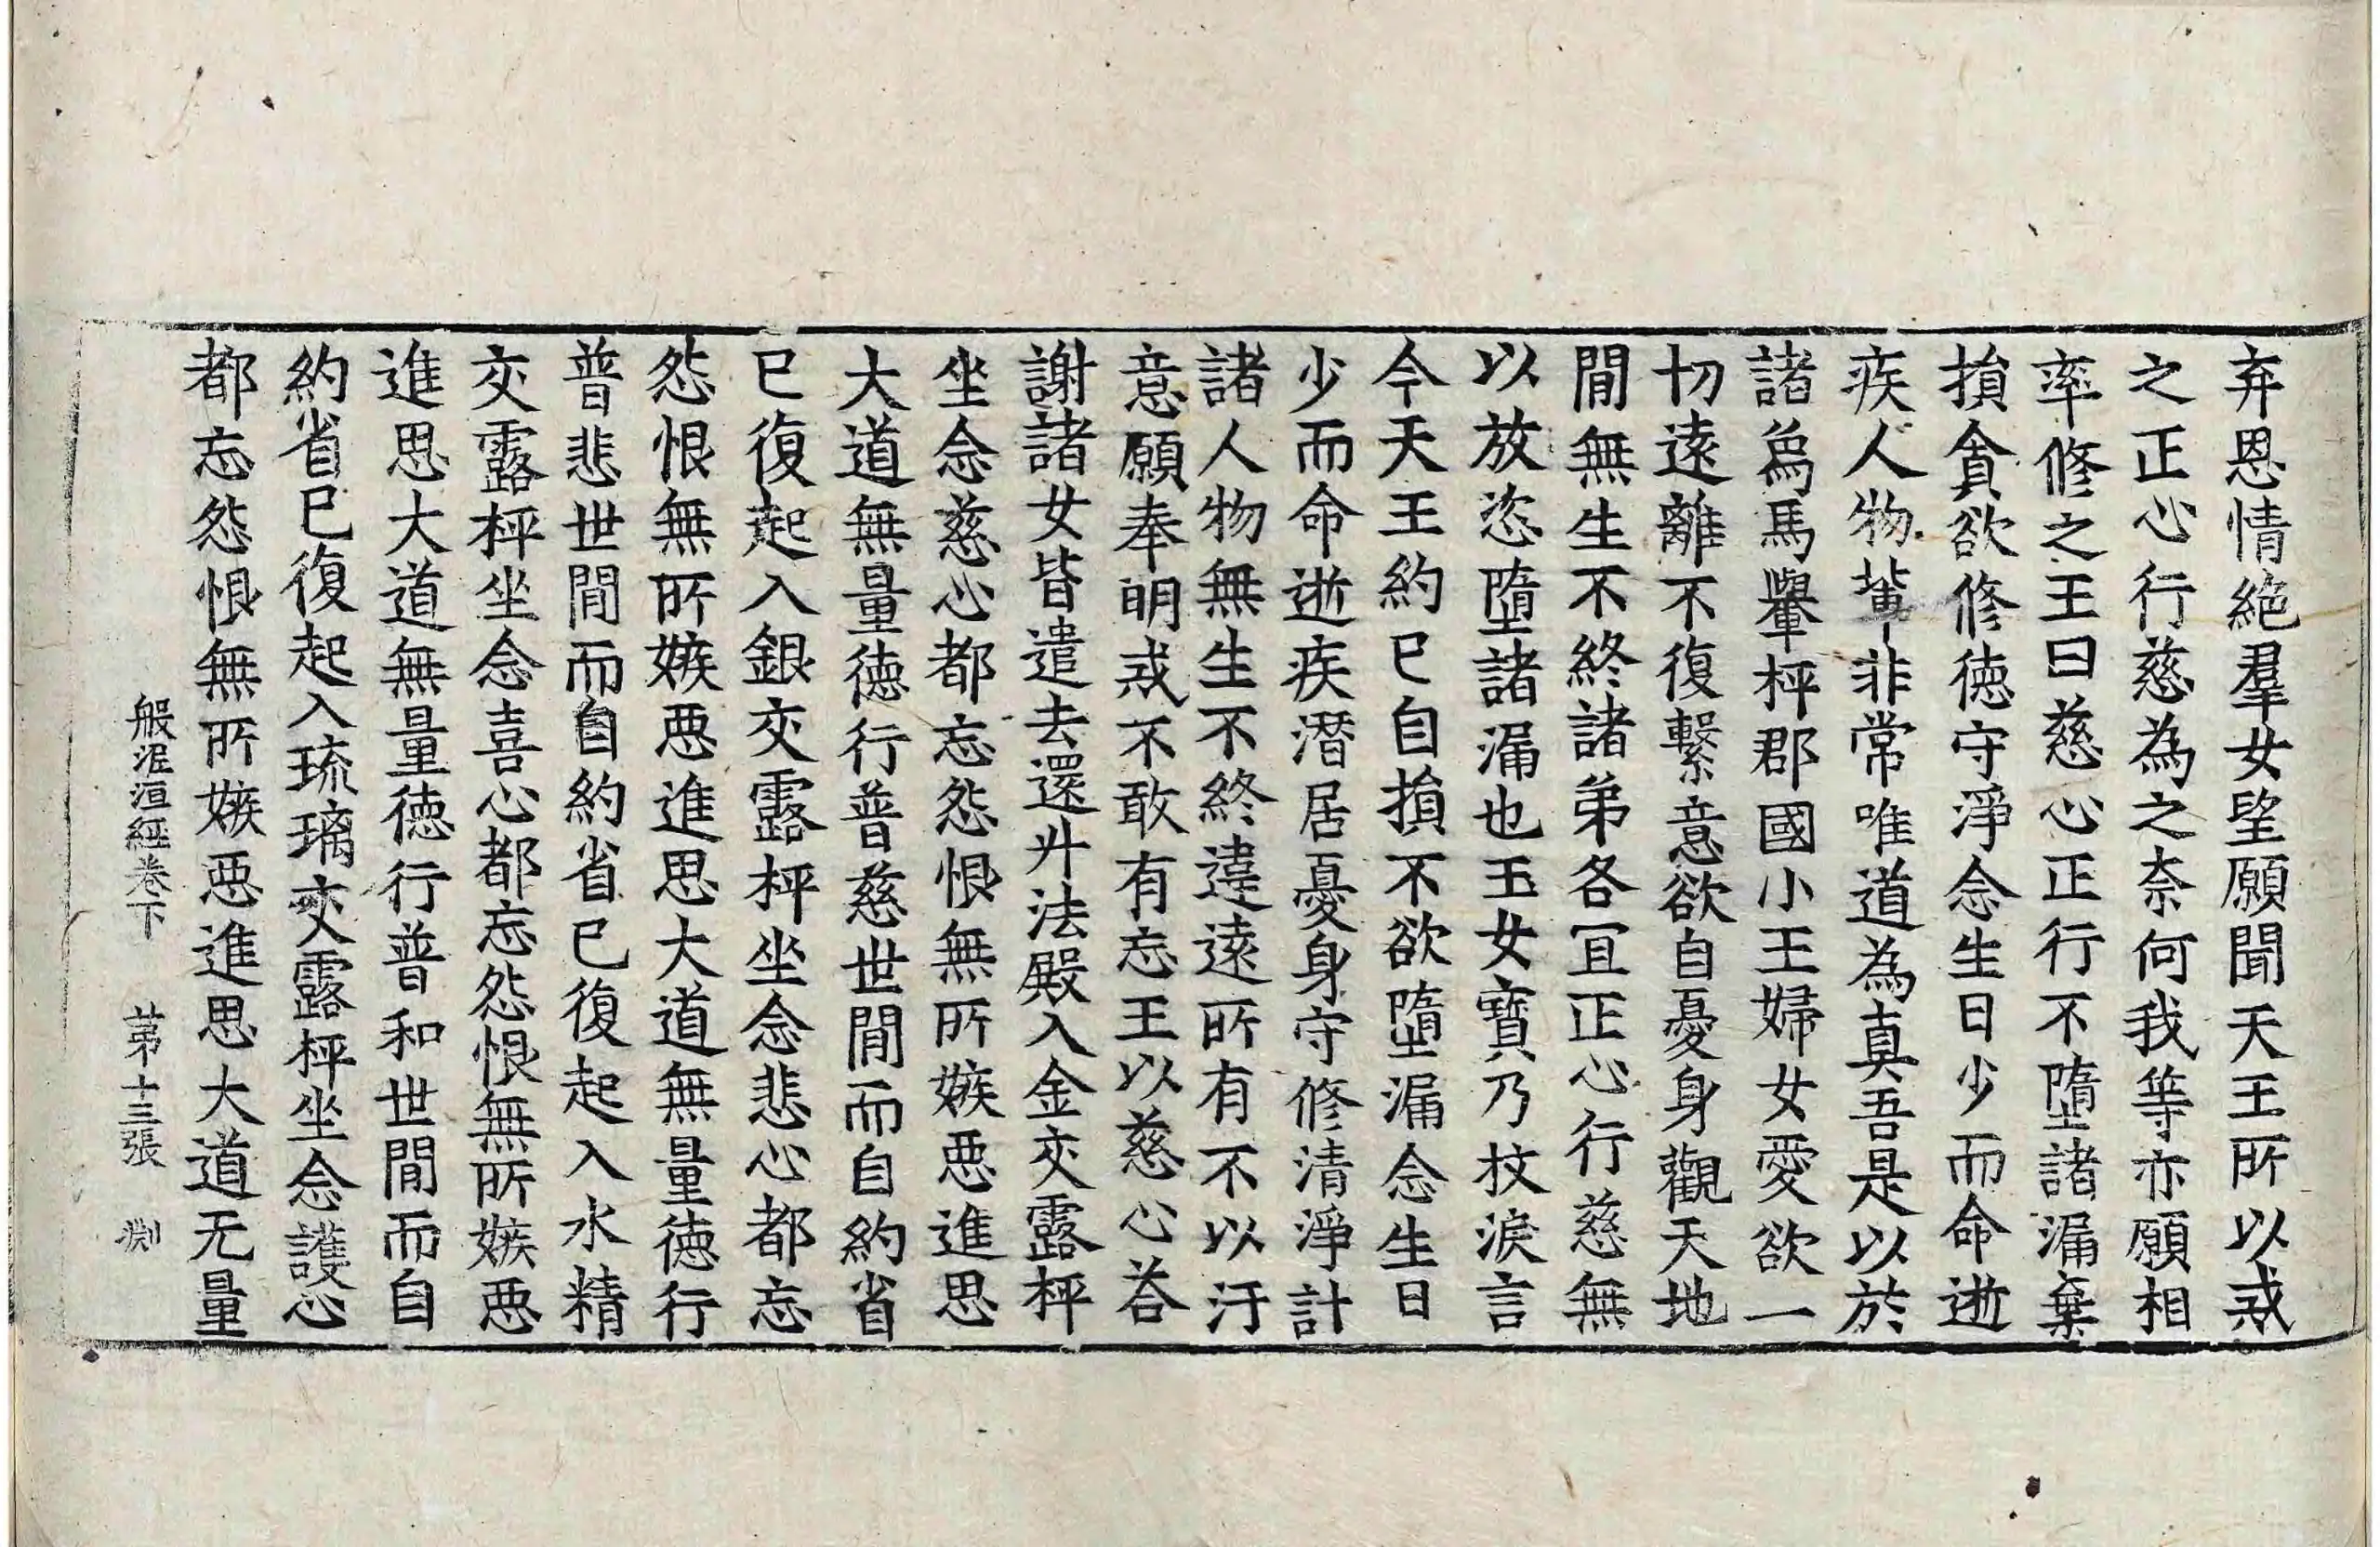 弃恩情絶羣女望願聞天王所以戒
之正心行慈為之奈何我等亦願相
率修之王曰慈心正行不墮諸漏棄
損貪欲修徳守淨念生日少而命逝
疾人物輩非常唯道為真吾是以於
諸為馬轝枰郡國小王婦女愛欲一
切遠離不復繫意欲自憂身觀天地
閒無生不終諸弟各冝正心行慈無
以放恣墮諸漏也玉女寶乃抆淚言
今天王約已自損不欲墮漏念生日
少而命逝疾潛居憂身守修清淨計
諸人物無生不終違遠所有不以汙
意願奉明戒不敢有忘王以慈心荅
謝諸女皆遣去還升法殿入金交露枰
坐念慈心都忘怨恨無所嫉惡進思
大道無量徳行普慈世閒而自約省
已復起入銀交露枰坐念悲心都忘
怨恨無所嫉惡進思大道無量徳行
普悲世閒而自約省已復起入水精
交露枰坐念喜心都忘怨恨無所嫉惡
進思大道無量徳行普和世閒而自
約省已復起入琉璃交露枰坐念護心
都忘怨恨無所嫉惡進思大道无量
般泥洹經卷下 苐十三張 渕